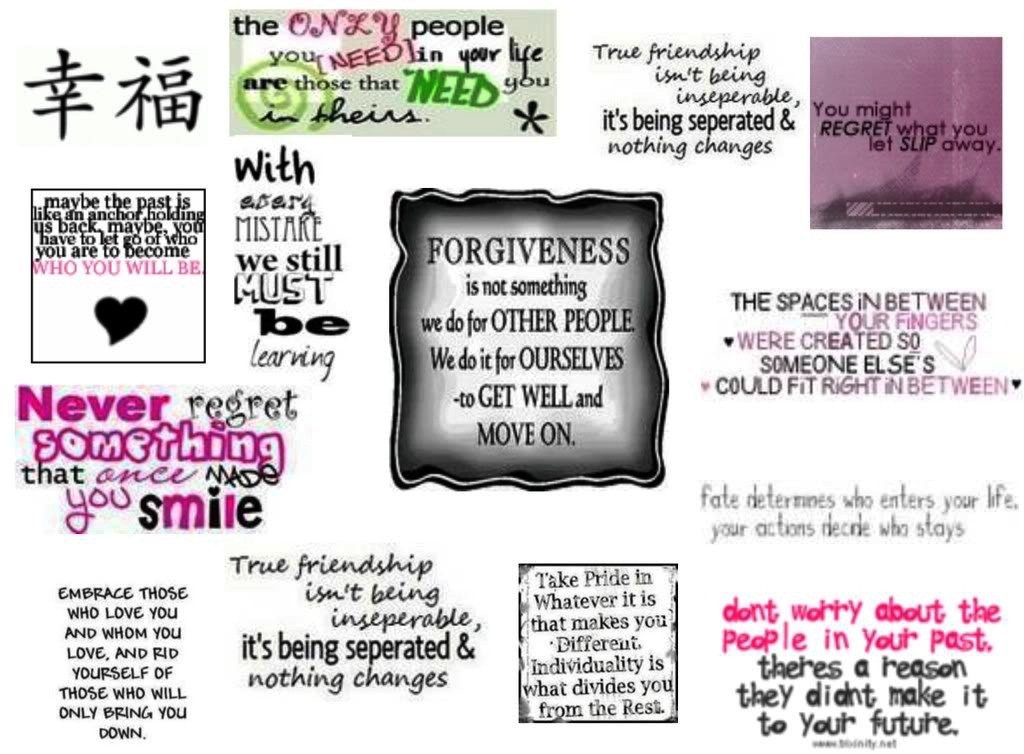 幸福
the ONLY people
you [NEED] in your life
are those that NEED you
in theirs. *
True friendship
isn't being
inseperable,
it's being seperated &
nothing changes
You might
REGRET what you
let SLIP away.
maybe the past is
like an anchor holding
us back. maybe, you
have to let go of who
you are to become
WHO YOU WILL BE.
With
every
MISTAKE
we still
MUST
be
learning
FORGIVENESS
is not something
we do for OTHER PEOPLE.
We do it for OURSELVES
-to GET WELL and
MOVE ON.
THE SPACES iN BETWEEN
YOUR FiNGERS
♥ WERE CREATED SO
SOMEONE ELSE'S
♥ COULD FiT RiGHT iN BETWEEN ♥
Never regret
something
that once MADE
you smile
fate determines who enters your life,
your actions decide who stays
EMBRACE THOSE
WHO LOVE YOU
AND WHOM YOU
LOVE, AND RID
YOURSELF OF
THOSE WHO WILL
ONLY BRING YOU
DOWN.
True friendship
isn't being
inseperable,
it's being seperated &
nothing changes
Take Pride in
Whatever it is
that makes you
Different.
Individuality is
what divides you
from the Rest.
dont worry about the
people in your past,
theres a reason
they didnt make it
to your future.